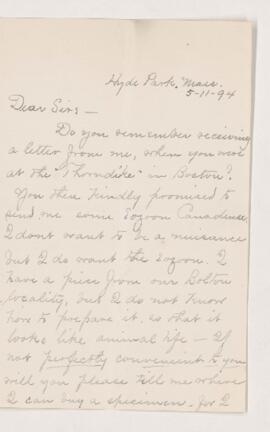 Hyde Park, Mass.
5-11-94
Dear Sir:—
Do you remember receiving
a letter from me, when you were
at the "Thorndike" in Boston?
You then kindly promised to
send me some Eozoon Canadense
I dont want to be a nuisance
but I do want the Eozoon. I
have a piece from our Bolton
locality, but I do not know
how to prepare it, so that it
looks like animal life — If
not perfectly convenient to you
will you please tell me where
I can buy a specimen. for I